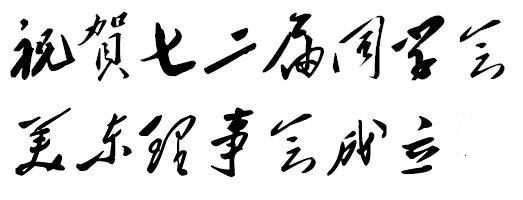 祝賀七二届同学会
美东理事会成立